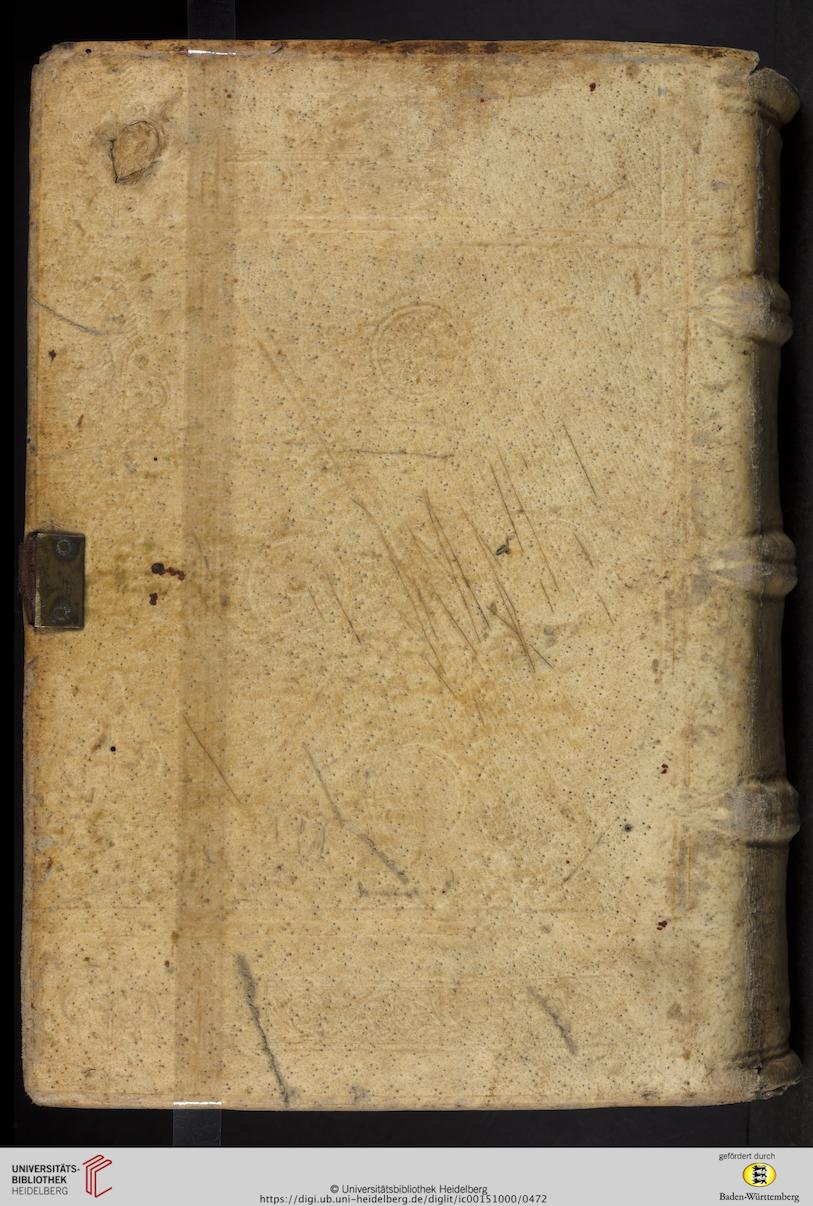 UNIVERSITÄTS-
BIBLIOTHEK
HEIDELBERG
© Universitätsbibliothek Heidelberg
https://digi.ub.uni-heidelberg.de/diglit/ic00151000/0472
gefördert durch
Baden-Württemberg